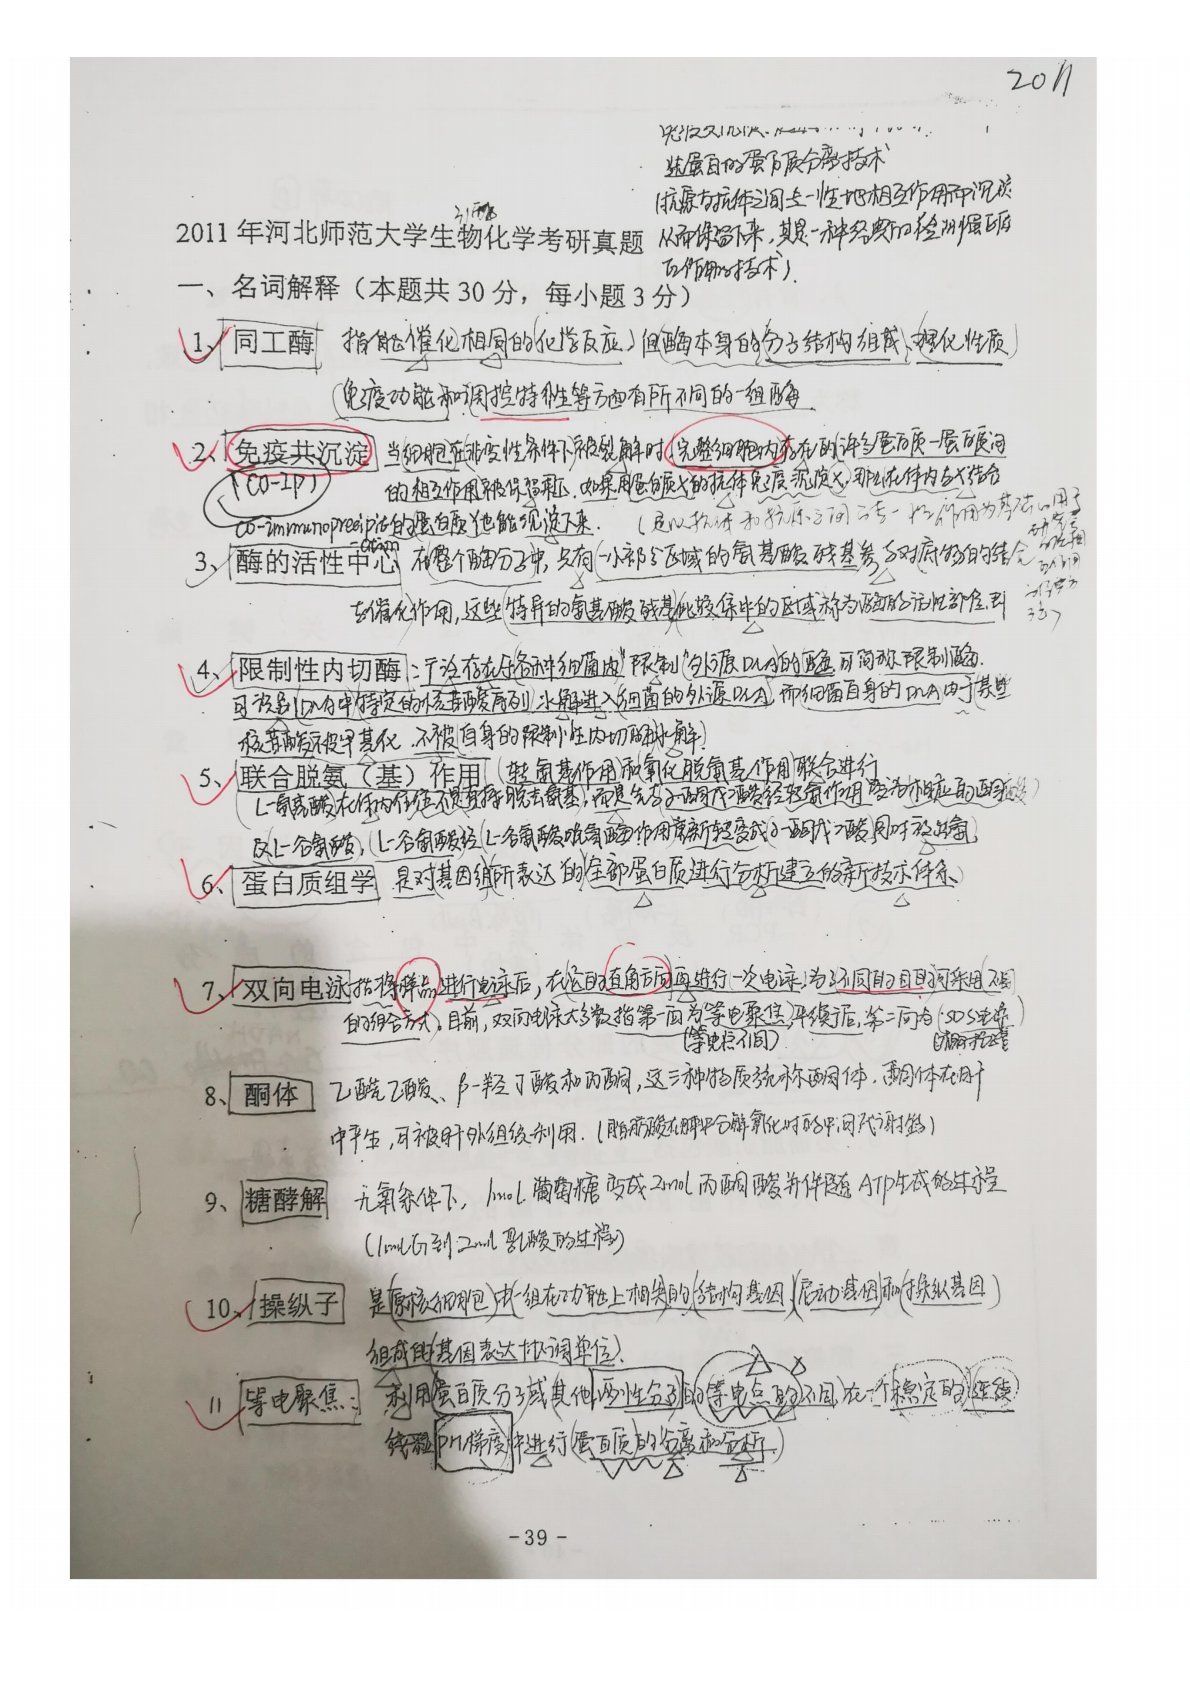 2011
蛋白的蛋白质分离技术
抗原与抗体之间专一性地相互作用而沉淀
从而保留下来，其是一种经典的检测蛋白质
互作用的技术）.
2011年河北师范大学生物化学考研真题
一、名词解释（本题共30分，每小题3分）
1、同工酶 指能催化相同的化学反应，但酶本身的分子结构组成、理化性质
免疫功能和调控特性等方面有所不同的一组酶
2、免疫共沉淀 当细胞在非变性条件下被裂解时，完整细胞内存在的许多蛋白质-蛋白质间
(CO-IP) 的相互作用被保留下来.如果用蛋白质X的抗体免疫沉淀X,那么在体内与X结合
co-immunoprecipitation 的蛋白质Y也能沉淀下来. (是以抗体和抗原之间的专一性作用为基础的用于
3、酶的活性中心 在整个酶分子中，只有一小部分区域的氨基酸残基参与对底物的结合
与催化作用,这些特异的氨基酸残基比较集中的区域称为酶的活性部位.
4、限制性内切酶：广泛存在于各种细菌内"限制"外源DNA的酶 可简称限制酶.
可识别DNA中特定的核苷酸序列，水解进入细菌的外源DNA，而细菌自身的DNA由于某些
核苷酸被甲基化，不被自身的限制性内切酶水解.
5、联合脱氨（基）作用 (转氨基作用和氧化脱氨基作用)联合进行
L-氨基酸在体内往往不是直接脱去氨基，而是先与α-酮戊二酸经转氨作用变为相应的酮酸
及L-谷氨酸，L-谷氨酸经L-谷氨酸脱氢酶作用重新转变成α-酮戊二酸,同时放出氨.
6、蛋白质组学 是对基因组所表达的全部蛋白质进行分析建立的新技术体系
7、双向电泳 指将样品进行电泳后，在它的直角方向再进行一次电泳，为了不同的目的可采用不同
的组合方式。目前，双向电泳大多数指第一向为等电聚焦，平衡后，第二向为SDS电泳
(等电点不同)
8、酮体 乙酰乙酸、β-羟丁酸和丙酮，这三种物质统称酮体．酮体在肝
中产生，可被肝外组织利用．(脂肪酸在肝中分解氧化时的中间代谢物)
9、糖酵解 无氧条件下，1mol葡萄糖变成2mol丙酮酸并伴随ATP生成的过程
(1molG到2mol乳酸的过程)
10、操纵子 是原核细胞中一组在功能上相关的结构基因,启动基因和操纵基因
组成的基因表达协调单位.
11 等电聚焦： 利用蛋白质分子或其他两性分子的等电点的不同,在一个稳定的连续
线性PH梯度中进行蛋白质的分离和分析
-39-